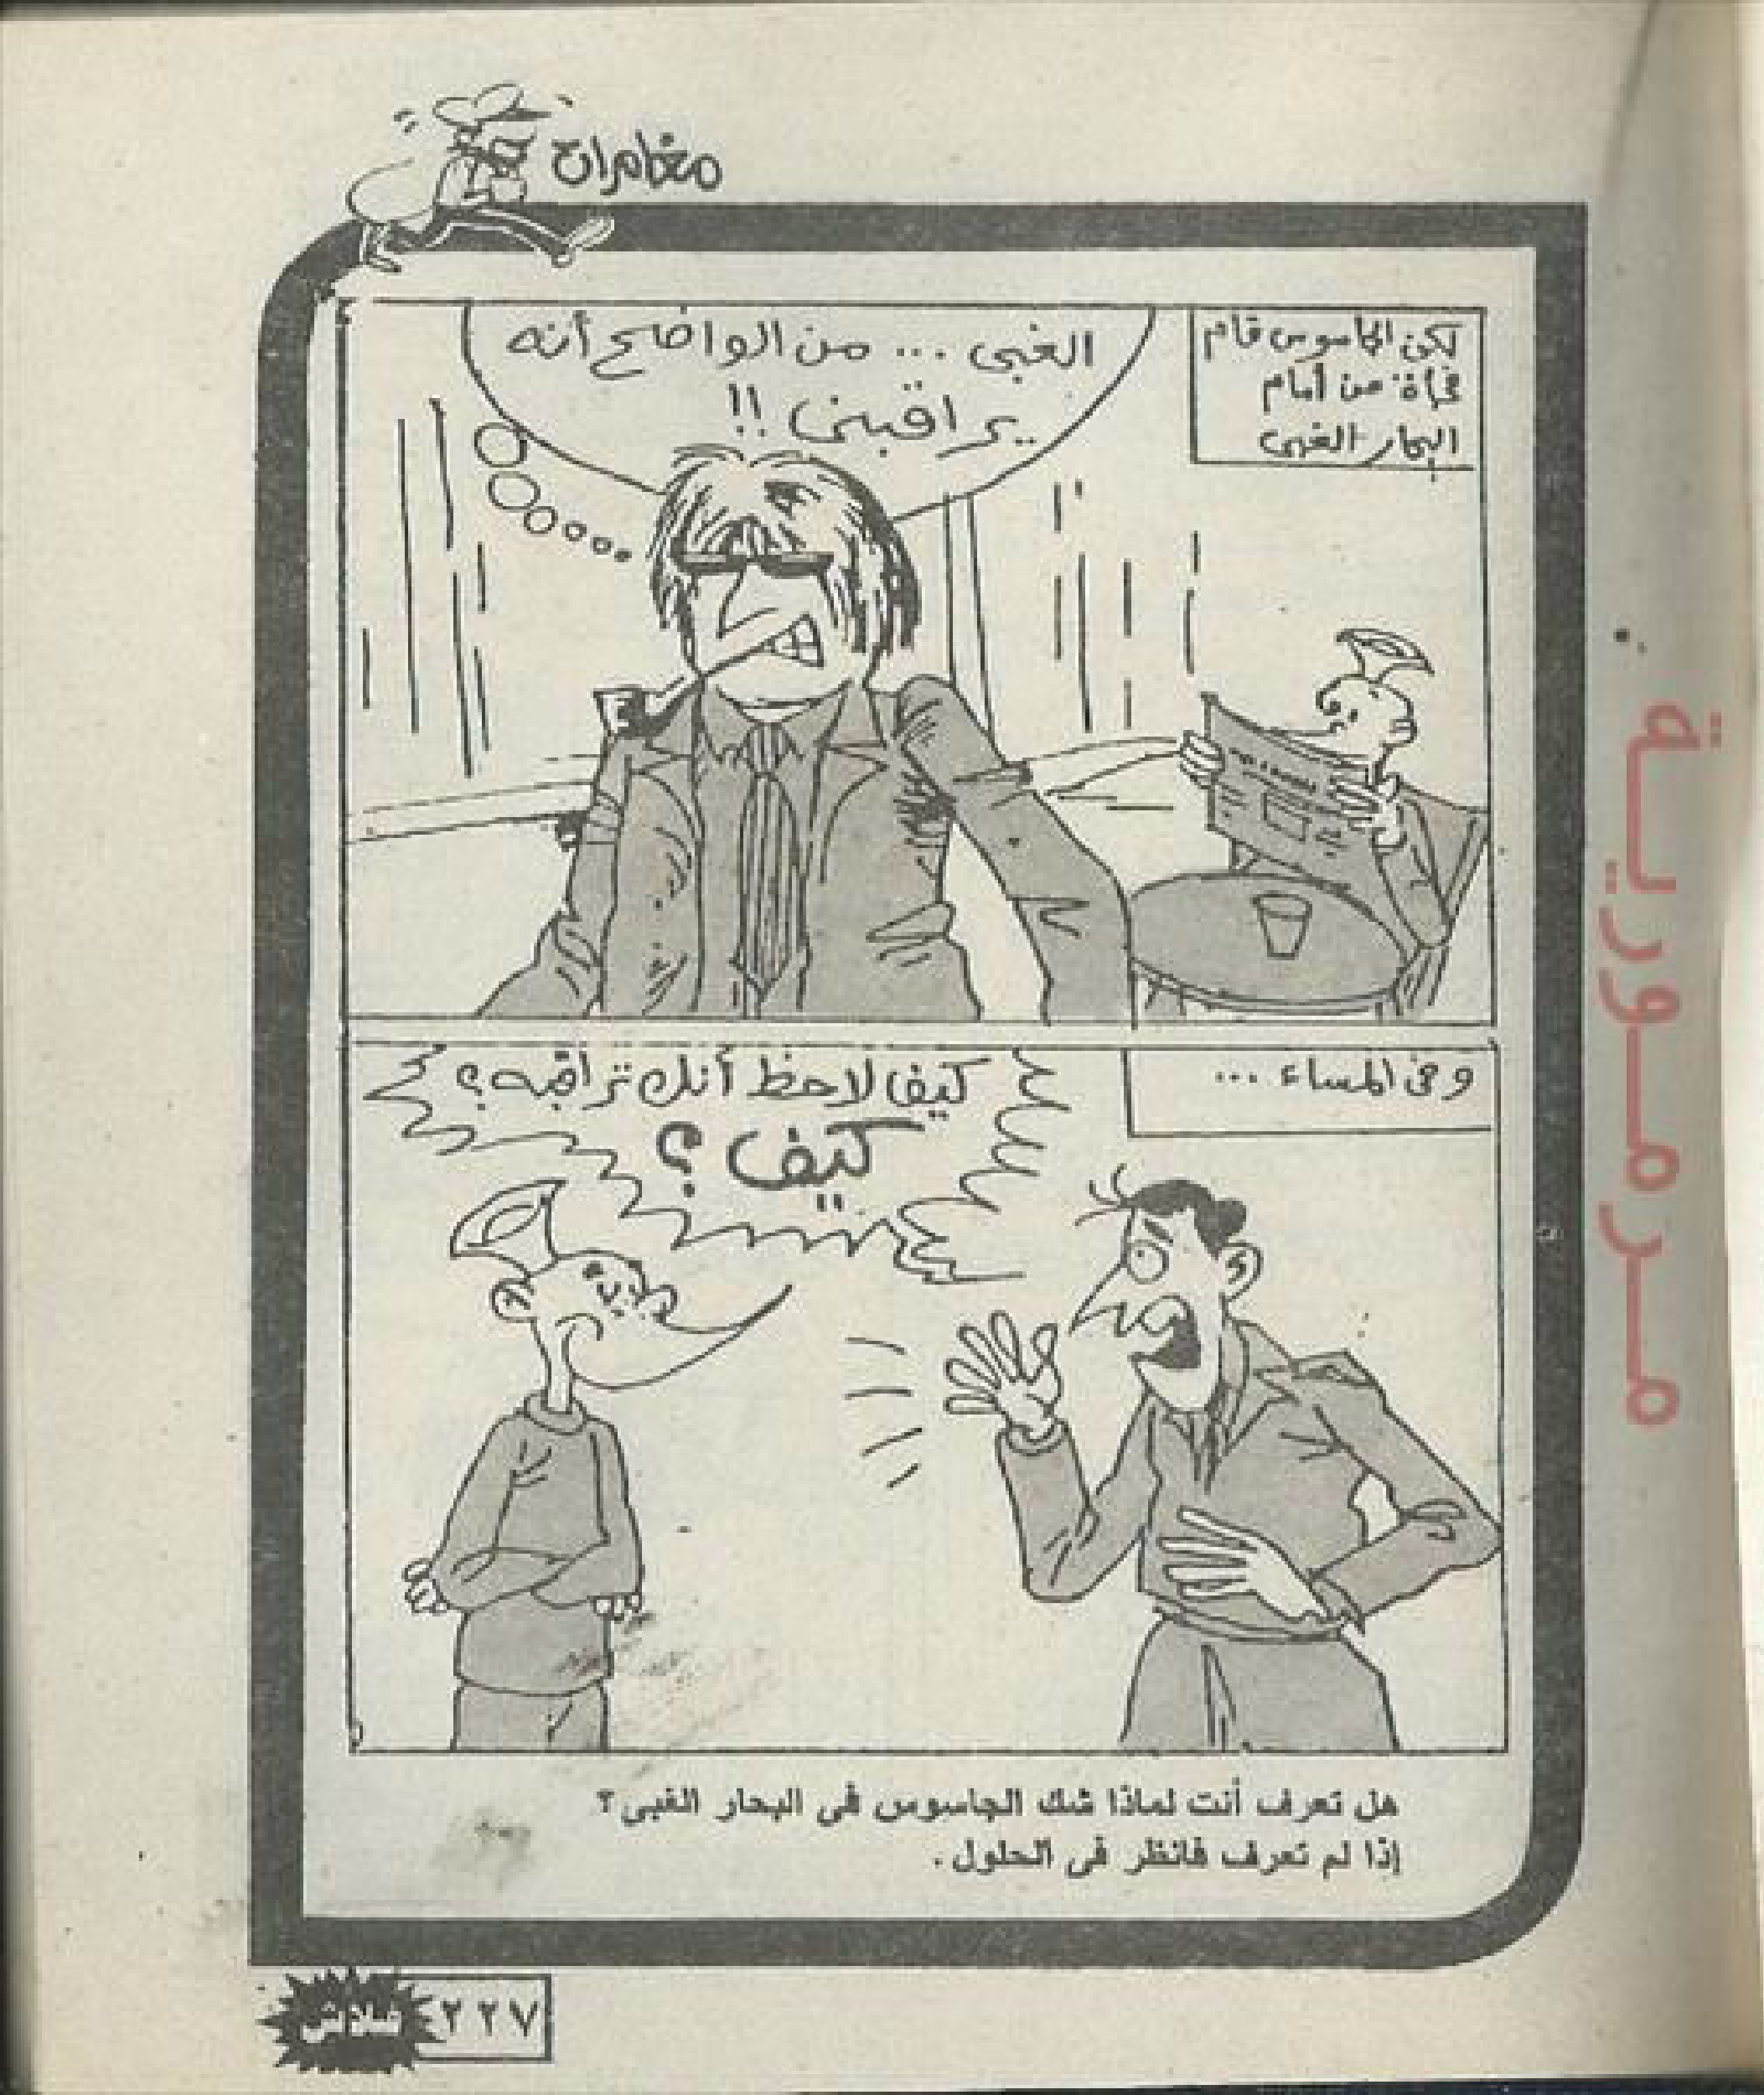 مغامرات
لكن الجاسوس قام
فجأة من أمام
البحار الغبى
الغبى ... من الواضح أنه
يراقبنى !!
وفى المساء ...
كيف لاحظ أنك تراقبه ؟
كيف ؟
هل تعرف أنت لماذا شك الجاسوس فى البحار الغبى ؟
إذا لم تعرف فانظر فى الحلول .
٢٢٧
فلاش
مرمورية